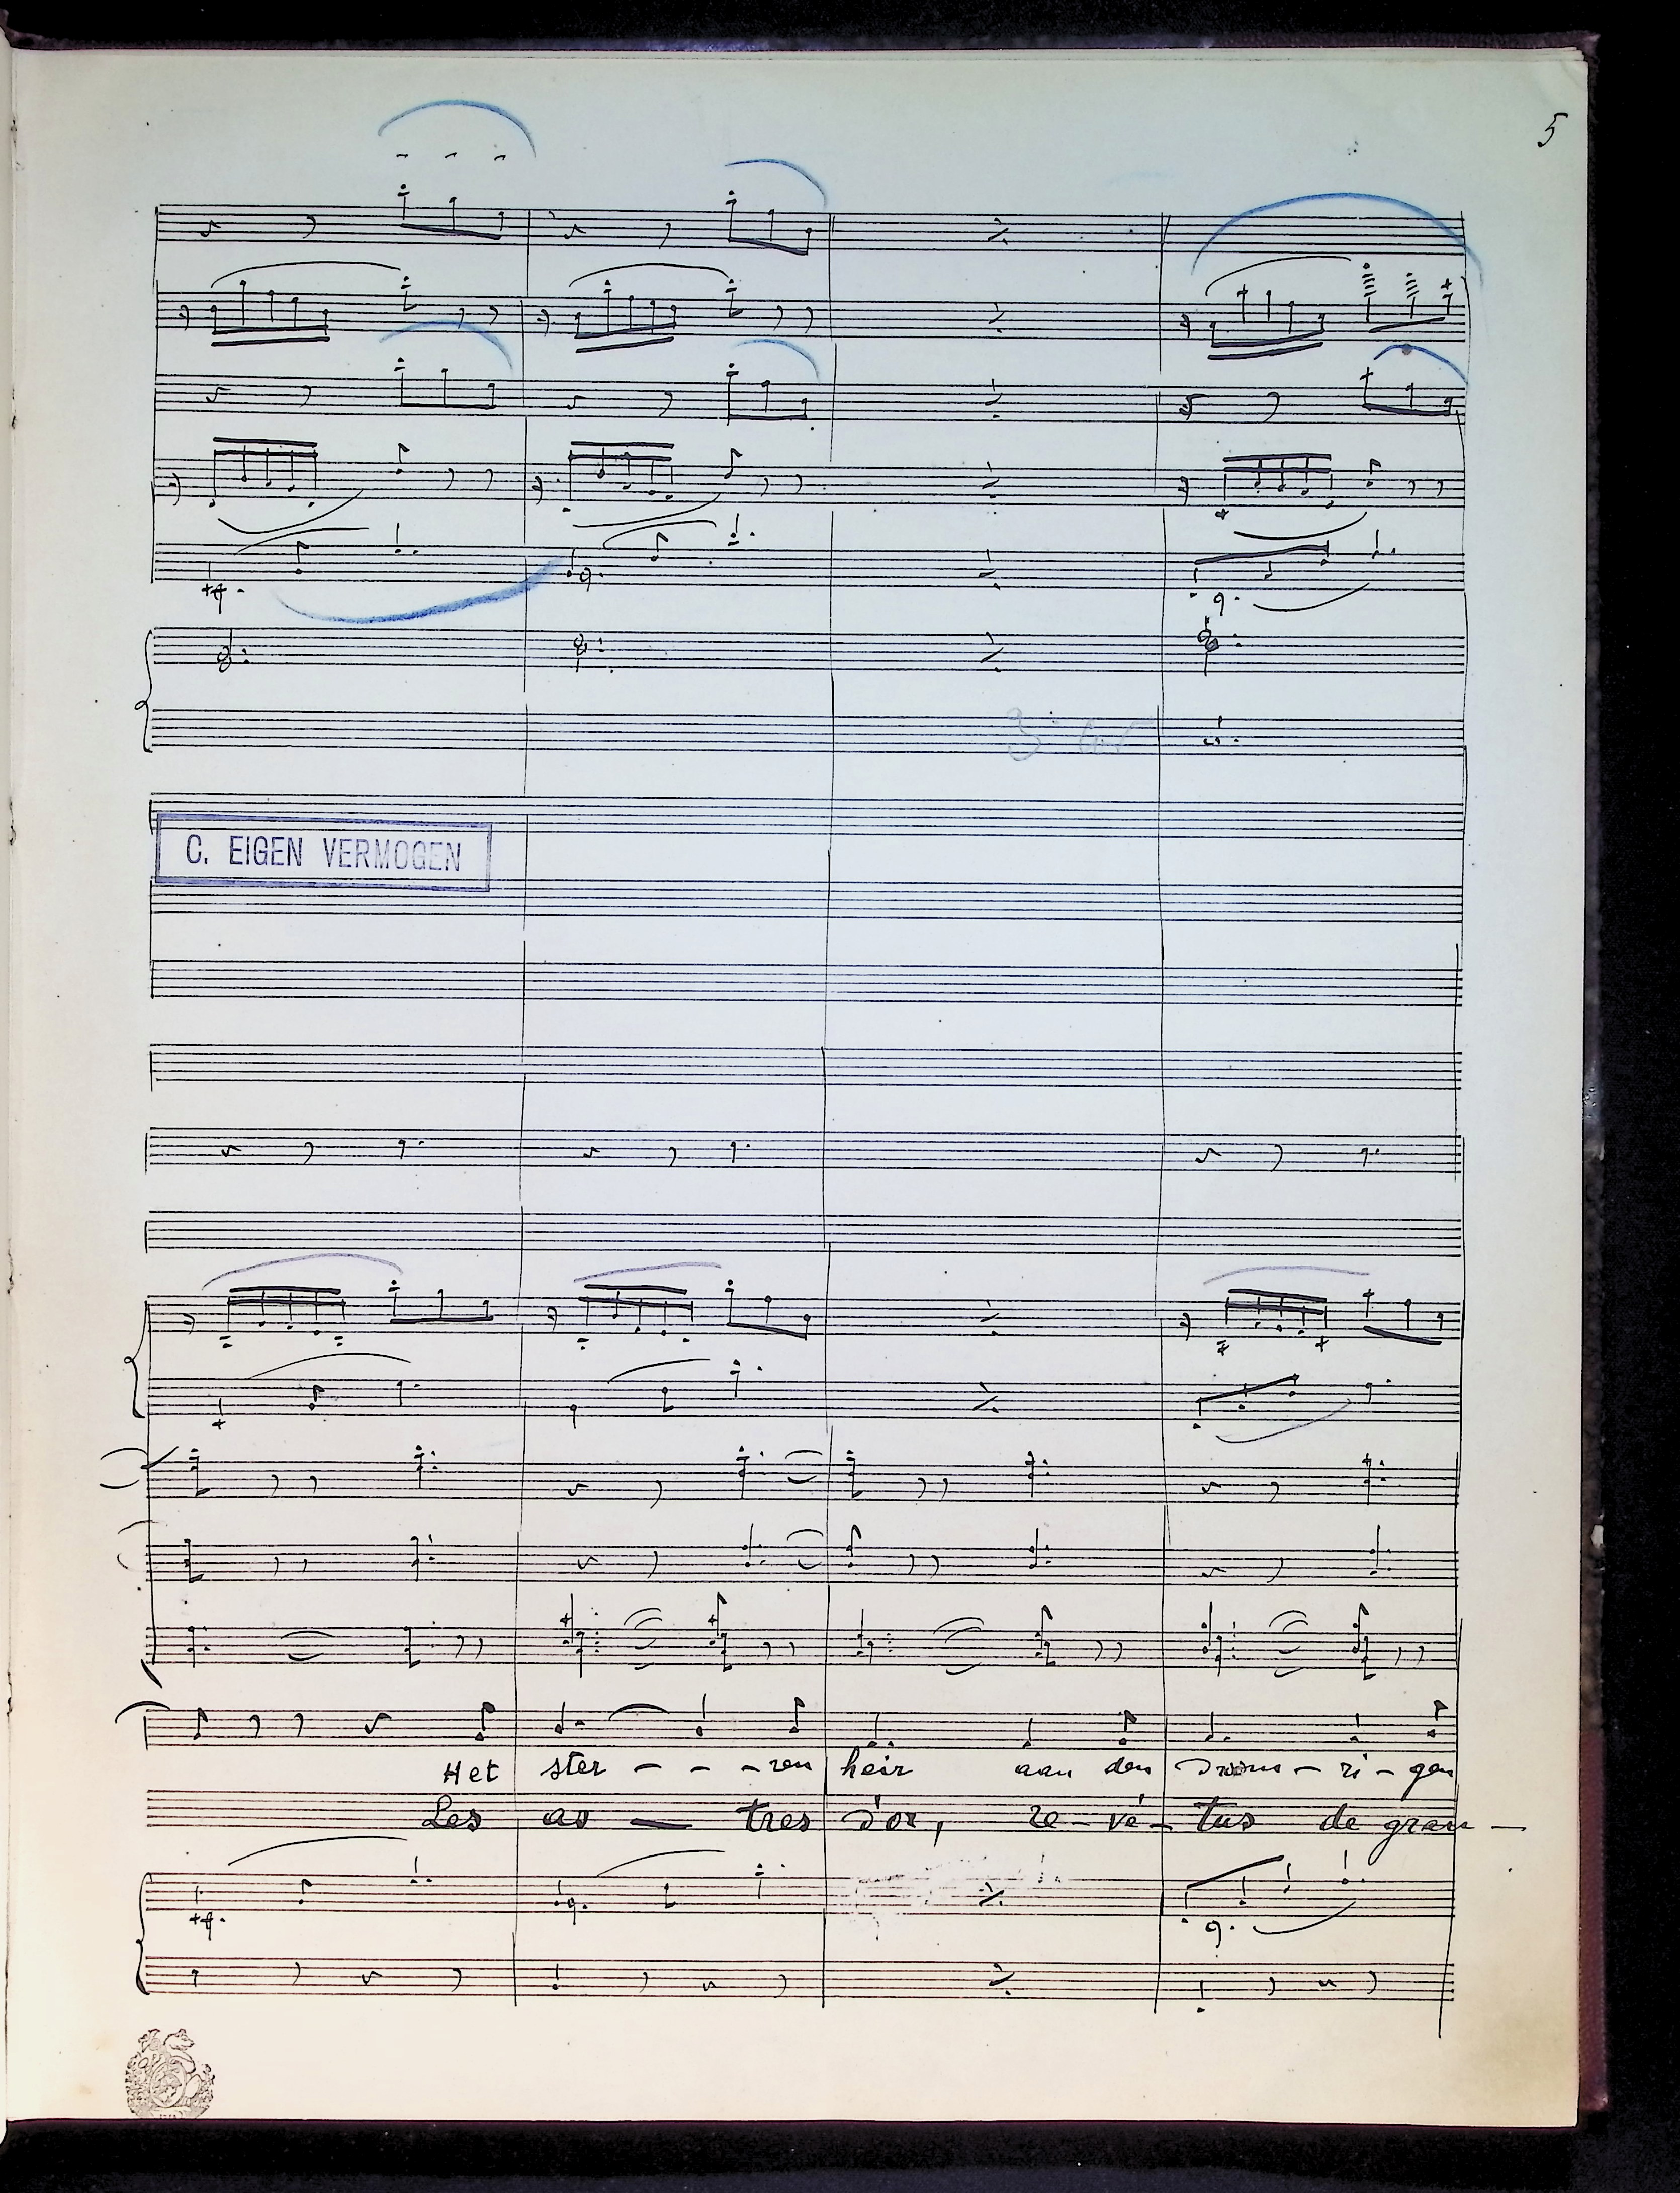 5
C. EIGEN VERMOGEN
Het ster - - - ren heir aan den droom - ri - gen
Les as — tres d'or, re - vê - tus de gran —